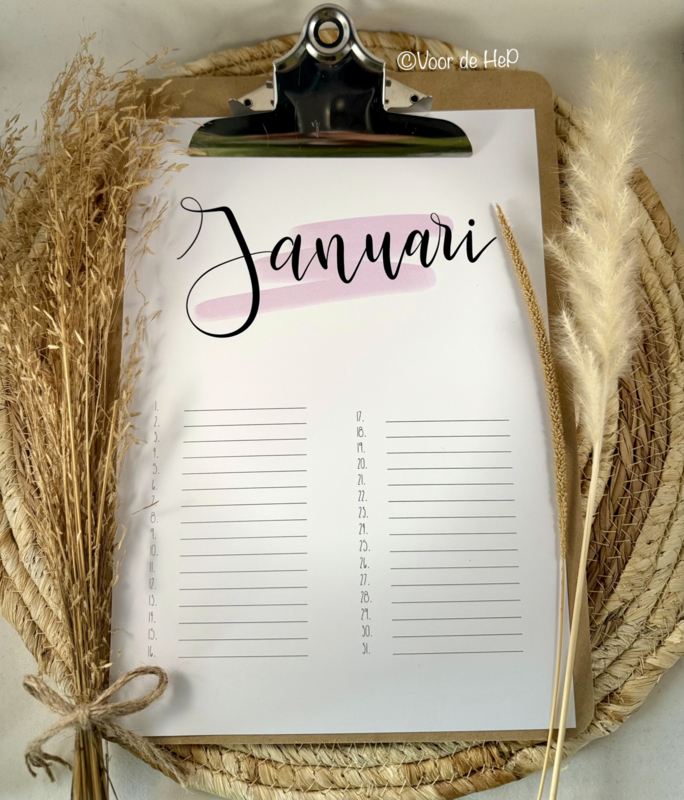 ©Voor de HeP
Januari
1.
2.
3.
4.
5.
6.
7.
8.
9.
10.
11.
12.
13.
14.
15.
16.
17.
18.
19.
20.
21.
22.
23.
24.
25.
26.
27.
28.
29.
30.
31.